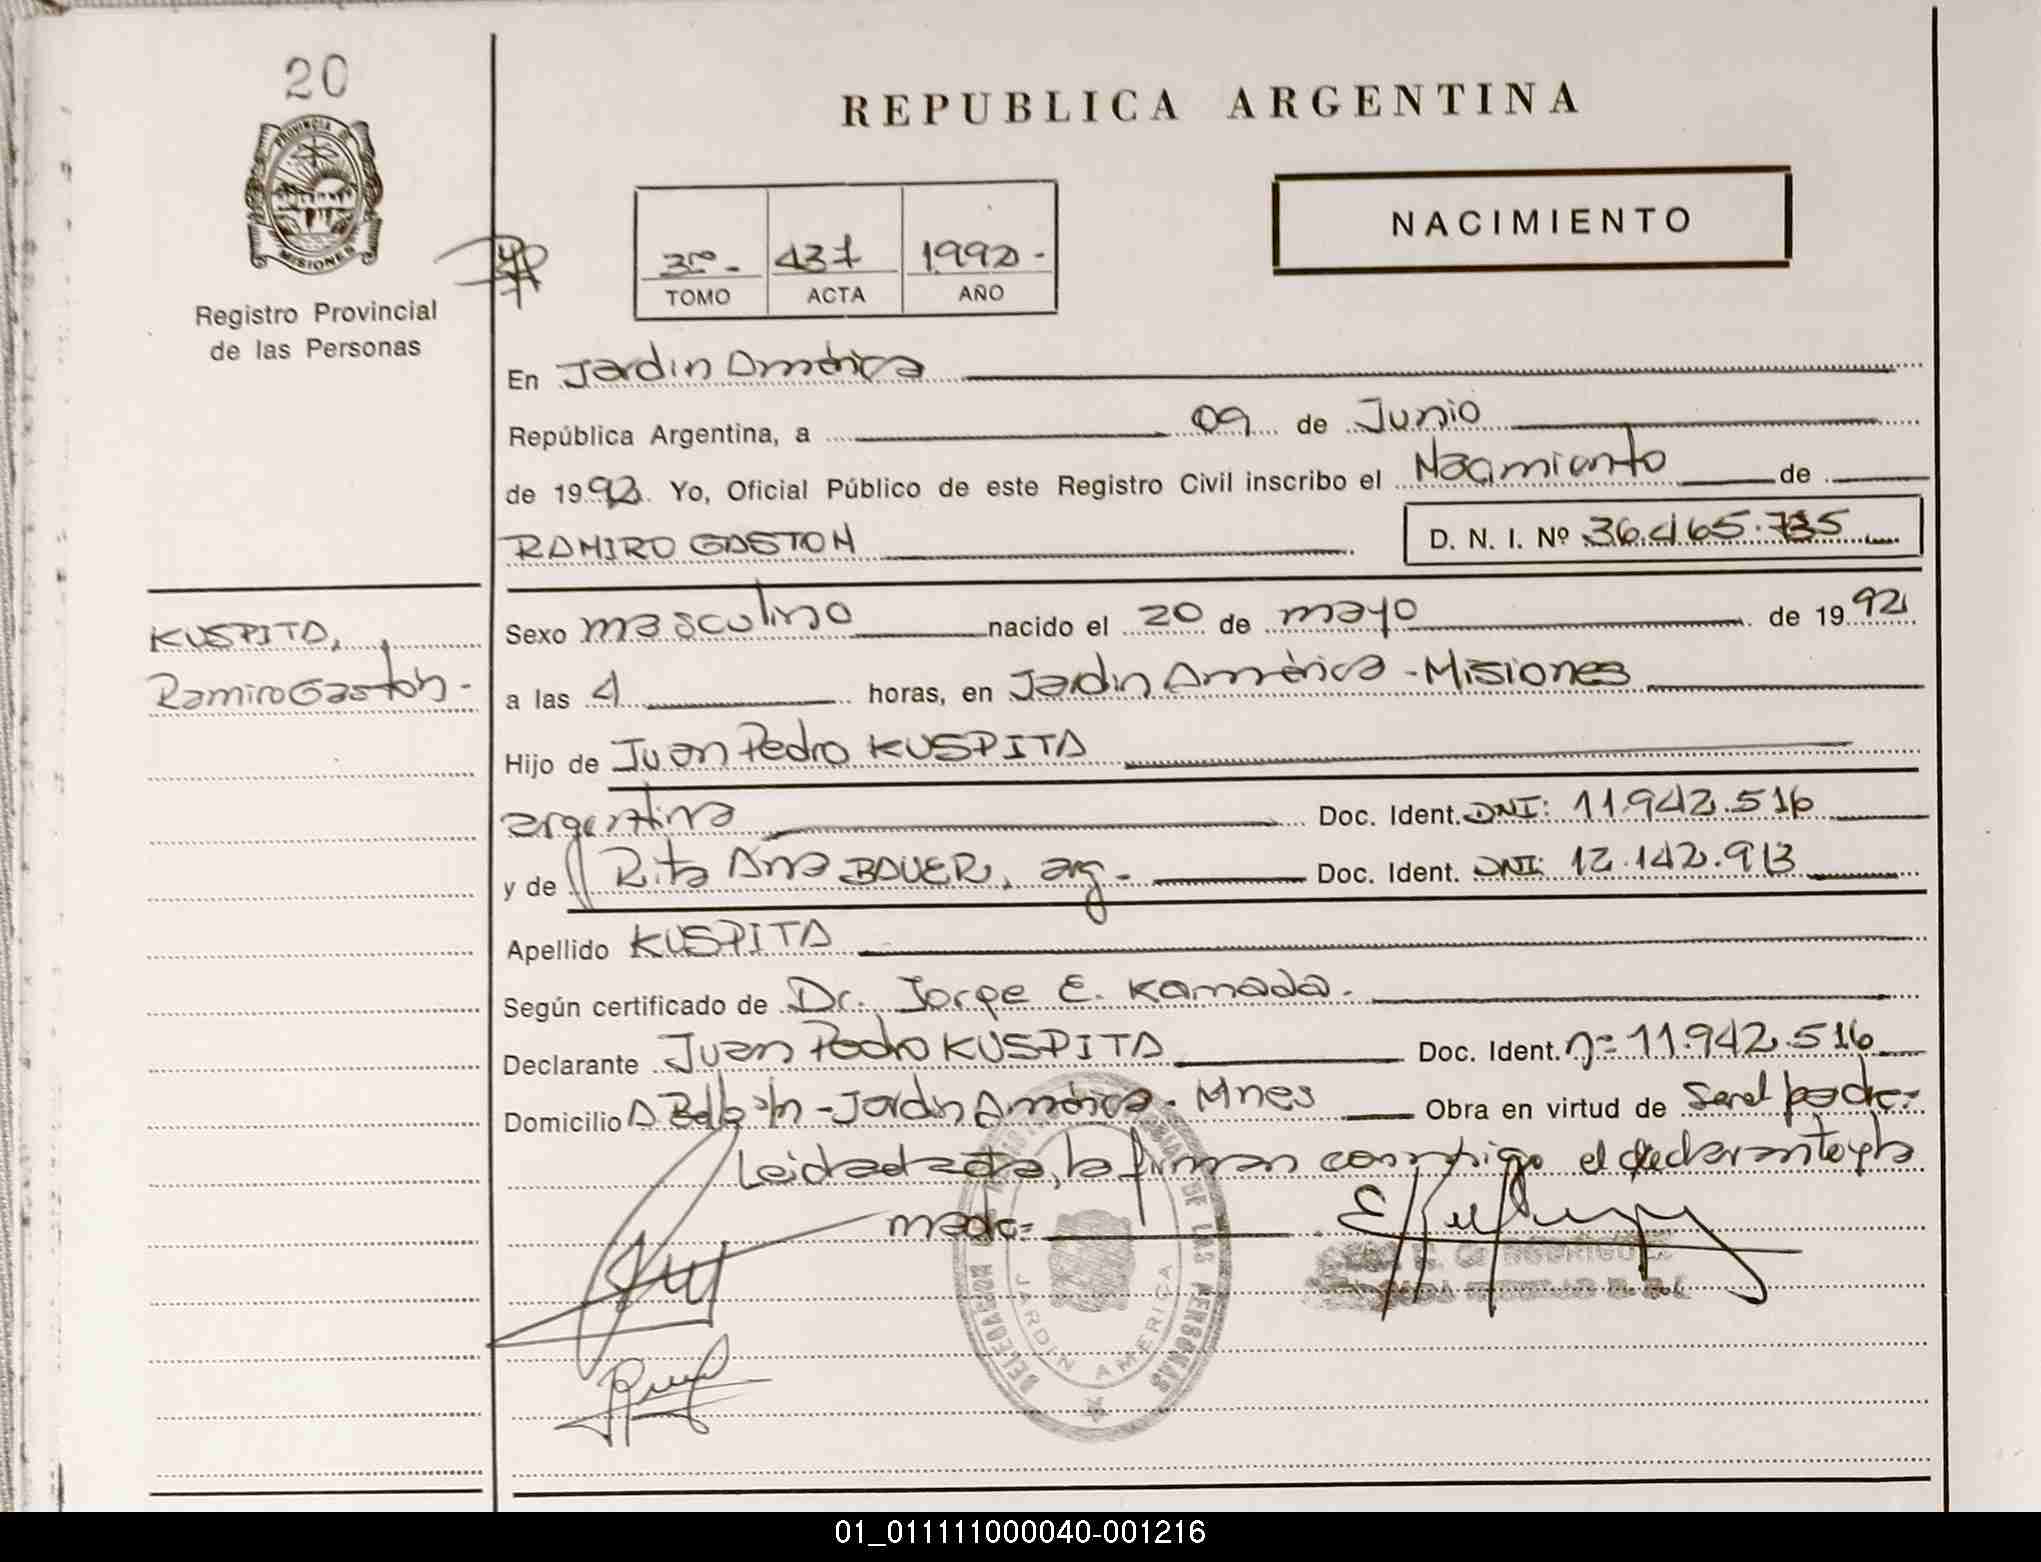 20
PROVINCIA DE
MISIONES
Registro Provincial
de las Personas
REPUBLICA ARGENTINA
NACIMIENTO
3ro - 437 1992 -
TOMO ACTA AÑO
En Jardin América
República Argentina, a 09 de Junio
de 1992. Yo, Oficial Público de este Registro Civil inscribo el Nacimiento de
RAMIRO GASTON D. N. I. Nº 36.465.735
KUSPITA,
Ramiro Gastón -
Sexo masculino nacido el 20 de mayo de 1992
a las 4 horas, en Jardin América - Misiones
Hijo de Juan Pedro KUSPITA
argentina Doc. Ident. DNI: 11.942.516
y de Rita Ana BAUER, arg - Doc. Ident. DNI: 12.142.913
Apellido KUSPITA
Según certificado de Dr. Jorge E. Kamada.
Declarante Juan Pedro KUSPITA Doc. Ident. nº 11.942.516
Domicilio A Belgrano - Jardin América - Mnes Obra en virtud de Ser el padre
Leida el acta, la firman conmigo el declarante y la
madre
DELEGACION REGISTRO PROVINCIAL DE LAS PERSONAS
JARDIN AMERICA
01_011111000040-001216